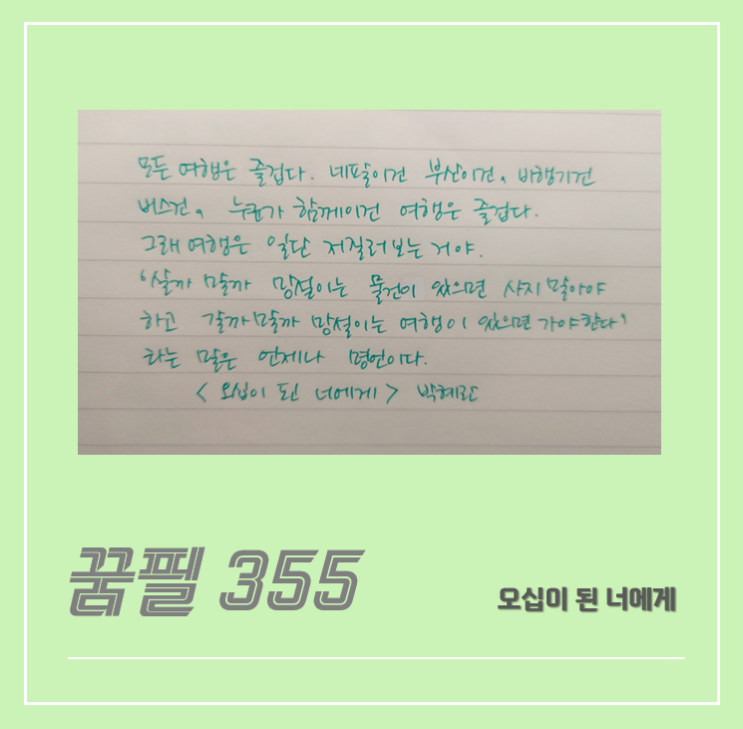 모든 여행은 즐겁다. 네팔이건 부산이건, 비행기건
버스건, 누군가 함께이건 여행은 즐겁다.
그래 여행은 일단 저질러보는 거야.
'살까 말까 망설이는 물건이 있으면 사지 말아야
하고 갈까 말까 망설이는 여행이 있으면 가야한다'
하는 말은 언제나 명언이다.
< 오십이 된 너에게 > 박혜란
꿈필 355
오십이 된 너에게